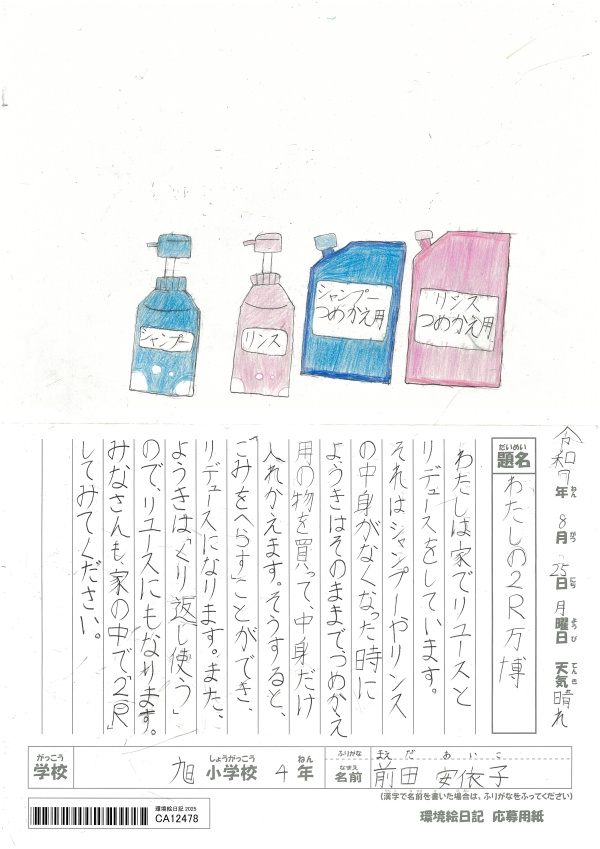 シャンプー
リンス
シャンプー
つめかえ用
リンス
つめかえ用
令和7年 8月 25日 月曜日 天気 晴れ
ねん がつ にち ようび てんき
だいめい
題名
わたしの2R万博
わたしは家でリユースと
リデュースをしています。
それはシャンプーやリンス
の中身がなくなった時に
ようきはそのままで、つめかえ
用の物を買って、中身だけ
入れかえます。そうすると、
「ごみをへらす」ことができ、
リデュースになります。また、
ようきは「くり返し使う」
ので、リユースにもなります。
みなさんも、家の中で「2R」
してみてください。
がっこう
学校
しょうがっこう ねん
旭 小学校 4年
ふりがな
まえだ あいこ
なまえ
名前
前田 安依子
(漢字で名前を書いた場合は、ふりがなをふってください)
環境絵日記 2025
CA12478
環境絵日記 応募用紙